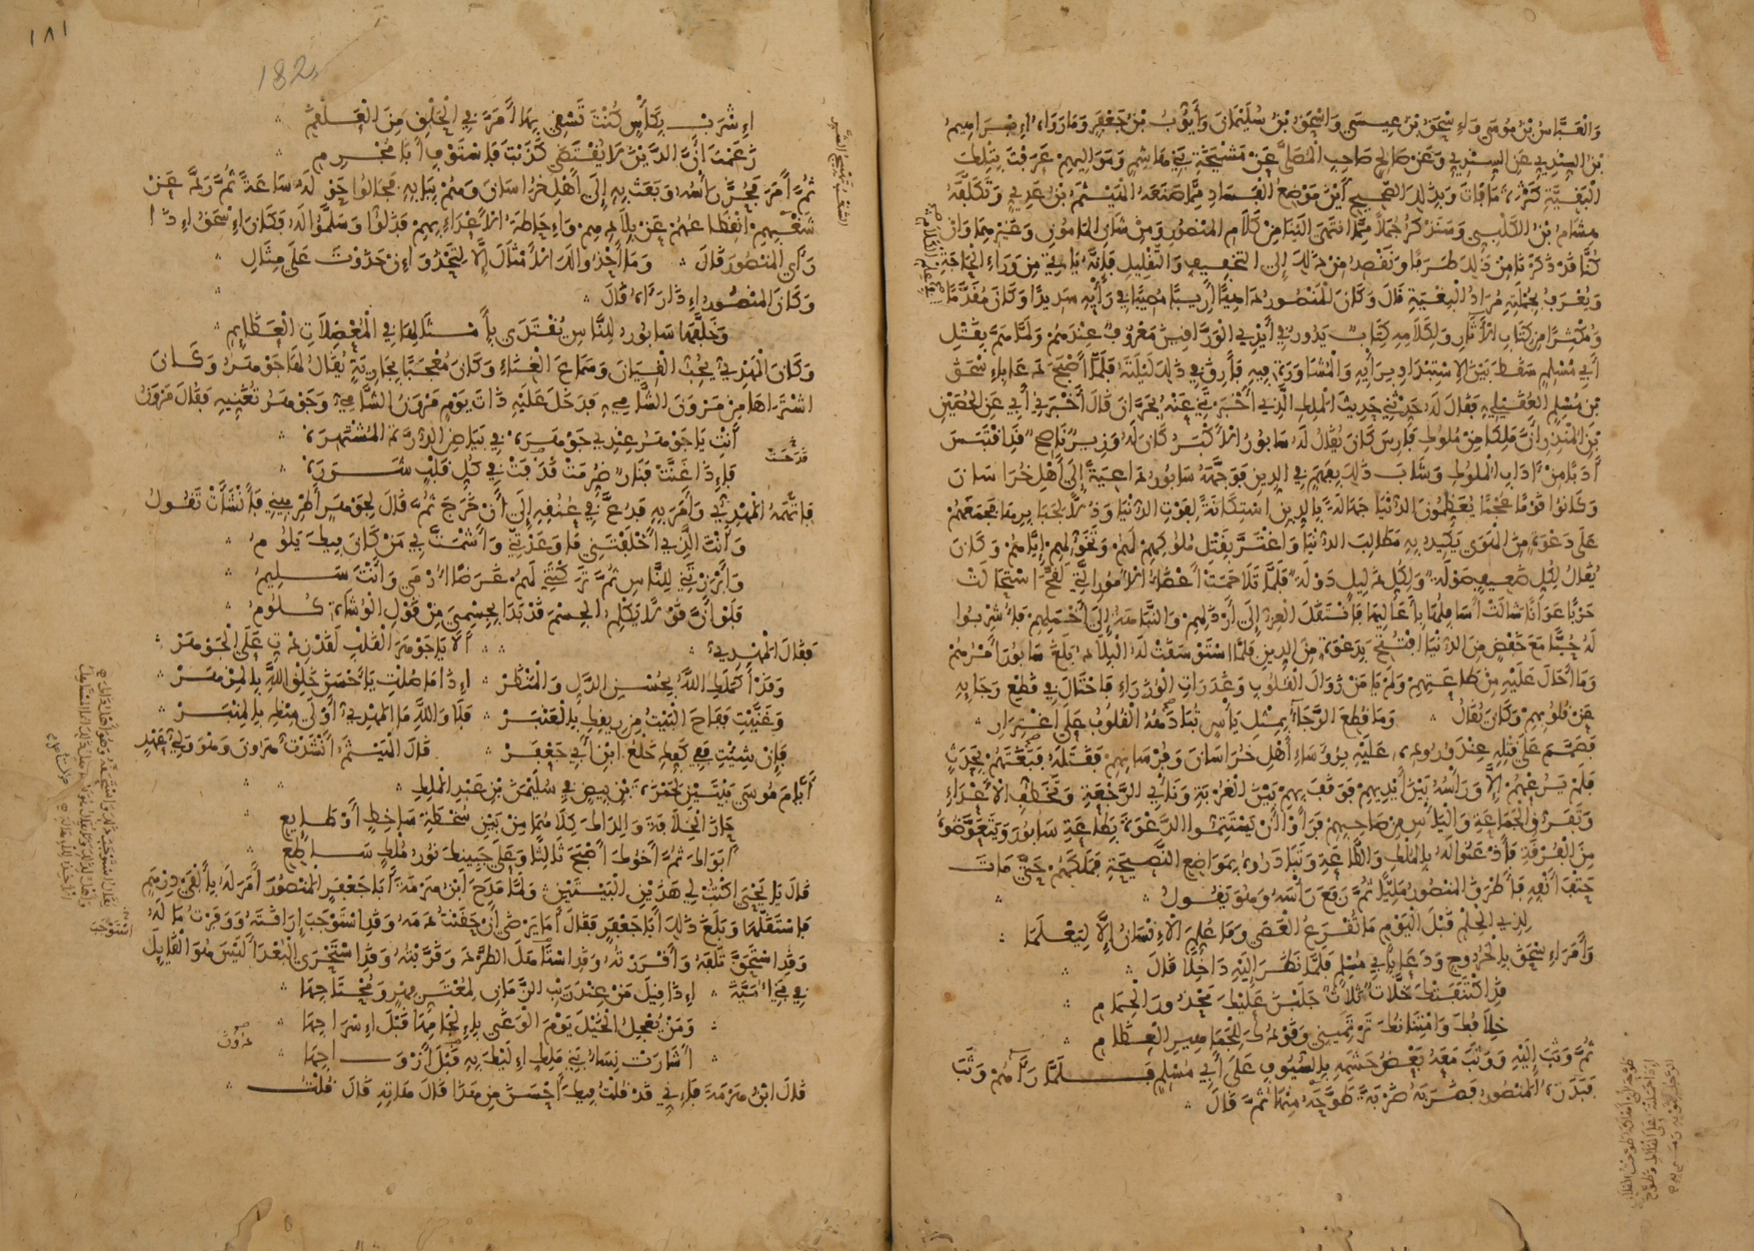 وَالْعَبَّاسُ بْنُ مُوسَى وَإِسْحَقُ بْنُ عِيسَى وَإِسْحَقُ بْنُ سُلَيْمَانَ وَأَيُّوبُ بْنُ جَعْفَرٍ وَمَا رَوَاهُ إِبْرَاهِيمُ
بْنُ السِّنْدِيِّ عَنِ السِّنْدِيِّ وَعَنْ صَالِحٍ صَاحِبِ الْمُصَلَّى عَنْ مَشْيَخَةِ بَنِي هَاشِمٍ وَمَوَالِيهِمْ عَرَفْتَ بِتِلْكَ
الْبَقِيَّةِ كَثْرَةَ مَا فَاتَ وَبِذَلِكَ الصَّحِيحِ أَيْنَ مَوْضِعُ الْفَسَادِ مِمَّا صَنَعَهُ الْهَيْثَمُ بْنُ عَدِيٍّ وَتَكَلَّفَهُ
هِشَامُ بْنُ الْكَلْبِيِّ وَسَنَذْكُرُ جُمَلًا مِمَّا انْتَهَى إِلَيْنَا مِنْ كَلَامِ الْمَنْصُورِ وَمِنْ شَأْنِ الْمَأْمُونِ وَغَيْرِهِمَا وَإِنْ
كُنَّا قَدْ ذَكَرْنَا مِنْ ذَلِكَ طَرَفًا وَنَقْصِدُ مِنْ ذَلِكَ إِلَى التَّخْفِيفِ وَالتَّقْلِيلِ فَإِنَّهُ يَأْتِي مِنْ وَرَاءِ الْحَاجَةِ
وَيُعْرَفُ بِجُمْلَتِهِ مُرَادُ الْبَقِيَّةِ قَالَ وَكَانَ الْمَنْصُورُ دَاهِيًا أَرِيبًا مُصِيبًا فِي رَأْيِهِ سَدِيدًا وَكَانَ مُقَدَّمًا
وَمُكْثِرًا مِنْ كِتَابِ الْآثَارِ وَلِكَلَامِهِ كِتَابٌ يَدُورُ فِي أَيْدِي الْوَرَّاقِينَ مَعْرُوفٌ عِنْدَهُمْ وَلَمَّا هَمَّ بِقَتْلِ
أَبِي مُسْلِمٍ سَقَطَ بَيْنَ الِاسْتِبْدَادِ بِرَأْيِهِ وَالْمُشَاوَرَةِ فِيهِ فَأَرِقَ فِي ذَلِكَ لَيْلَتَهُ فَلَمَّا أَصْبَحَ دَعَا بِإِسْحَقَ
بْنِ مُسْلِمٍ الْعُقَيْلِيِّ فَقَالَ لَهُ حَدِّثْنِي حَدِيثَ الْمَلِكِ الَّذِي أَخْبَرْتَنِي عَنْهُ بِحَرَّانَ قَالَ أَخْبَرَنِي أَبِي عَنِ الْحُضَيْنِ
بْنِ الْمُنْذِرِ أَنَّ مَلِكًا مِنْ مُلُوكِ فَارِسَ كَانَ يُقَالُ لَهُ سَابُورُ الْأَكْبَرُ كَانَ لَهُ وَزِيرٌ نَاصِحٌ قَدِ اقْتَبَسَ
أَدَبًا مِنْ آدَابِ الْمُلُوكِ وَشَابَ ذَلِكَ بِفَهْمٍ فِي الدِّينِ فَوَجَّهَهُ سَابُورُ دَاعِيَةً إِلَى أَهْلِ خُرَاسَانَ
وَكَانُوا قَوْمًا عُجْمًا يُعَظِّمُونَ الدُّنْيَا جَهَالَةً بِالدِّينِ اسْتِكَانَةً لِقُوتِ الدُّنْيَا وَذُلًّا لِجَبَابِرِهَا فَجَمَعَهُمْ
عَلَى دَعْوَةٍ مِنَ الْهَوَى يَكِيدُ بِهِ مَطَالِبَ الدُّنْيَا وَاغْتَرَّ بِقَتْلِ مُلُوكِهِمْ لَهُمْ وَتَخَوُّلِهِمْ إِيَّاهُمْ وَكَانَ
يُقَالُ لِكُلِّ ضَعِيفٍ صَوْلَةٌ وَلِكُلِّ ذَلِيلٍ دَوْلَةٌ فَلَمَّا تَلَاحَمَتْ أَعْضَاءُ الْأُمُورِ الَّتِي لَقَّحَ اسْتَحَالَتْ
حَرْبًا عَوَانًا شَالَتْ أَسَافِلُهَا بِأَعَالِيهَا فَانْتَقَلَ الْعِزُّ إِلَى أَرْذَلِهِمْ وَالنَّبَاهَةُ إِلَى أَخْمَلِهِمْ فَأُشْرِبُوا
لَهُ حُبًّا مَعَ خَفْضٍ مِنَ الدُّنْيَا افْتُتِحَ بِدَعْوَةٍ مِنَ الدِّينِ فَلَمَّا اسْتَوْسَقَتْ لَهُ الْبِلَادُ بَلَغَ سَابُورَ أَمْرُهُمْ
وَمَا أَحَالَ عَلَيْهِ مِنْ طَاعَتِهِمْ وَلَمْ يَأْمَنْ زَوَالَ الْقُلُوبِ وَغَدَرَاتِ الْوُزَرَاءِ فَاحْتَالَ فِي قَطْعِ رَجَائِهِ
عَنْ قُلُوبِهِمْ وَكَانَ يُقَالُ وَمَا قُطِعَ الرَّجَاءُ بِمِثْلِ يَأْسٍ تُبَادِهُهُ الْقُلُوبُ عَلَى اغْتِرَارِ
فَصَمَّمَ عَلَى قَتْلِهِ عِنْدَ وُرُودِهِ عَلَيْهِ بِرُؤَسَاءِ أَهْلِ خُرَاسَانَ وَفُرْسَانِهِمْ فَقَتَلَهُ فَبَغَتَهُمْ بِحَدَثٍ
فَلَمْ يَرُعْهُمْ إِلَّا وَرَأْسُهُ بَيْنَ أَيْدِيهِمْ فَوَقَفَ بِهِمْ بَيْنَ الْغُرْبَةِ وَنَأْيِ الرَّجْعَةِ وَتَخَطُّفِ الْأَعْدَاءِ
وَتَفَرُّقِ الْجَمَاعَةِ وَالْيَأْسِ مِنْ صَاحِبِهِمْ فَرَأَوْا أَنْ يَسْتَتِمُّوا الدَّعْوَةَ بِطَاعَةِ سَابُورَ وَيَتَعَوَّضُوهُ
مِنَ الْفُرْقَةِ فَأَذْعَنُوا لَهُ بِالْمُلْكِ وَالطَّاعَةِ وَتَبَادَرُوهُ بِمَوَاضِعِ النَّصِيحَةِ فَمَلَكَهُمْ حَتَّى مَاتَ
حَتْفَ أَنْفِهِ فَأَطْرَقَ الْمَنْصُورُ مَلِيًّا ثُمَّ رَفَعَ رَأْسَهُ وَهُوَ يَقُولُ
لِذِي الْحِلْمِ قَبْلَ الْيَوْمِ مَا تُقْرَعُ الْعَصَى وَمَا عُلِّمَ الْإِنْسَانُ إِلَّا لِيَعْلَمَا
وَأَمَرَ إِسْحَقَ بِالْخُرُوجِ وَدَعَا بِأَبِي مُسْلِمٍ فَلَمَّا نَظَرَ إِلَيْهِ دَاخِلًا قَالَ
قَدِ اكْتَنَفَتْكَ خَلَّاتٌ ثَلَاثٌ جَلَبْنَ عَلَيْكَ مَحْذُورَ الْحِمَامِ
خِلَافُكَ وَامْتِنَانُكَ تَرْتَمِينِي وَقَوْدُكَ لِلْجَمَاهِيرِ الْعِظَامِ
ثُمَّ وَثَبَ إِلَيْهِ وَوَثَبَ مَعَهُ بَعْضُ حَشَمِهِ بِالسُّيُوفِ عَلَى أَبِي مُسْلِمٍ فَلَمَّا رَآهُمْ وَثَبَ
فَبَدَرَهُ الْمَنْصُورُ فَضَرَبَهُ ضَرْبَةً طَوَّحَهُ مِنْهَا ثُمَّ قَالَ
١٨١
182
اِشْرَبْ بِكَأْسٍ كُنْتَ تَسْقِي بِهَا أَمَرَّ فِي الْحَلْقِ مِنَ الْعَلْقَمِ
زَعَمْتَ أَنَّ الدَّيْنَ لَا يُقْتَضَى كَذَبْتَ فَاسْتَوْفِ أَبَا مُجْرِمِ
ثُمَّ أَمَرَ فَحُزَّ رَأْسُهُ وَبَعَثَ بِهِ إِلَى أَهْلِ خُرَاسَانَ وَهُمْ بِبَابِهِ فَجَالُوا حَوْلَهُ سَاعَةً ثُمَّ رَدَّ عَنْ
شَغْبِهِمُ انْقِطَاعُهُمْ عَنْ بِلَادِهِمْ وَإِحَاطَةُ الْأَعْدَاءِ بِهِمْ فَذَلُّوا وَسَلَّمُوا لَهُ فَكَانَ إِسْحَقُ إِذَا
رَأَى الْمَنْصُورَ قَالَ وَمَا أَحْذُو لَكَ الْأَمْثَالَ إِلَّا لِتَحْذُوَ إِنْ حَذَوْتَ عَلَى مِثَالِ
وَكَانَ الْمَنْصُورُ إِذَا رَآهُ قَالَ
وَخَلَّفَهَا سَابُورُ لِلنَّاسِ يُقْتَدَى بِأَمْثَالِهَا فِي الْمُعْضِلَاتِ الْعَظَائِمِ
وَكَانَ الْمَهْدِيُّ يُحِبُّ الْقِيَانَ وَسَمَاعَ الْغِنَاءِ وَكَانَ مُعْجَبًا بِجَارِيَةٍ يُقَالُ لَهَا جَوْهَرُ وَكَانَ
اشْتَرَاهَا مِنْ مَرْوَانَ الشَّامِيِّ فَدَخَلَ عَلَيْهِ ذَاتَ يَوْمٍ مَرْوَانُ الشَّامِيُّ وَجَوْهَرُ تُغَنِّيهِ فَقَالَ مَرْوَانُ
أَنْتِ يَا جَوْهَرُ عِنْدِي جَوْهَرَهْ فِي بَيَاضِ الدُّرَّةِ الْمُشْتَهَرَهْ
فَإِذَا غَنَّتْ فَنَارٌ ضُرِّمَتْ قَذَفَتْ فِي كُلِّ قَلْبٍ شَرَرَهْ
قَدَحَتْ
فَاتَّهَمَهُ الْمَهْدِيُّ وَأَمَرَ بِهِ فَدُعَّ فِي عُنُقِهِ إِلَى أَنْ خَرَجَ ثُمَّ قَالَ لِجَوْهَرَ أَطْرِبِينِي فَأَنْشَأَتْ تَقُولُ
وَأَنْتَ الَّذِي أَخْلَفْتَنِي مَا وَعَدْتَنِي وَأَشْمَتَّ بِي مَنْ كَانَ فِيكَ يَلُومُ
وَأَبْرَزْتَنِي لِلنَّاسِ ثُمَّ تَرَكْتَنِي لَهُمْ غَرَضًا أُرْمَى وَأَنْتَ سَلِيمُ
فَلَوْ أَنَّ قَوْلًا يَكْلِمُ الْجِسْمَ قَدْ بَدَا بِجِسْمِيَ مِنْ قَوْلِ الْوُشَاةِ كُلُومُ
فَقَالَ الْمَهْدِيُّ أَلَا يَا جَوْهَرَ الْقَلْبِ لَقَدْ زِدْتِ عَلَى الْجَوْهَرْ
وَقَدْ أَكْمَلَكِ اللَّهُ بِحُسْنِ الدَّلِّ وَالْمَنْظَرْ إِذَا مَا صُلْتِ يَا أَحْسَنَ خَلْقِ اللَّهِ بِالْمِزْهَرْ
وَغَنَّيْتِ فَفَاحَ الْبَيْتُ مِنْ رِيقِكِ بِالْعَنْبَرْ فَلَا وَاللَّهِ مَا الْمَهْدِيُّ أَوْلَى مِنْكِ بِالْمِنْبَرْ
فَإِنْ شِئْتِ فَفِي كَفِّكِ خَلْعُ ابْنِ أَبِي جَعْفَرْ قَالَ الْهَيْثَمُ أَنْشَدْتُ هَارُونَ وَهُوَ وَلِيُّ عَهْدٍ
أَيَّامَ مُوسَى بَيْتَيْنِ لِحَمْزَةَ بْنِ بِيضٍ فِي سُلَيْمَنَ بْنِ عَبْدِ الْمَلِكِ
حَازَ الْخِلَافَةَ وَالِدَاكَ كِلَاهُمَا مِنْ بَيْنِ سَخْطَةِ سَاخِطٍ أَوْ طَائِعِ
أَبَوَاكَ ثُمَّ أَخُوكَ أَصْبَحَ ثَالِثًا وَعَلَى جَبِينِكَ نُورُ مُلْكٍ سَاطِعِ
قَالَ يَا يَحْيَى اكْتُبْ لِي هَذَيْنِ الْبَيْتَيْنِ وَلَمَّا مَدَحَ ابْنُ هَرْمَةَ أَبَا جَعْفَرٍ الْمَنْصُورَ أَمَرَ لَهُ بِأَلْفَيْ دِرْهَمٍ
فَاسْتَقَلَّهَا وَبَلَغَ ذَلِكَ أَبَا جَعْفَرٍ فَقَالَ أَمَا يَرْضَى أَنْ حَقَنْتُ دَمَهُ وَقَدِ اسْتَوْجَبَ إِرَاقَتَهُ وَوَفَّرْتُ مَا لَهُ
وَقَدِ اسْتَحَقَّ تَلَفَهُ وَأَقْرَرْتُهُ وَقَدِ اسْتَأْهَلَ الطَّرْدَ وَقَرَّبْتُهُ وَقَدِ اسْتَحْرَى الْبُعْدَ أَلَيْسَ هُوَ الْقَائِلَ
فِي بَنِي أُمَيَّةَ إِذَا قِيلَ مَنْ عِنْدَ رَيْبِ الزَّمَانِ لِمُعْتَرِّ فِهْرٍ وَمُحْتَاجِهَا
وَمَنْ يُعْجِلُ الْخَيْلَ يَوْمَ الْوَغَى بِإِلْجَامِهَا قَبْلَ إِسْرَاجِهَا
أَشَارَتْ نِسَاءُ بَنِي مَالِكٍ إِلَيْكَ بِهِ قَبْلَ أَزْوَاجِهَا
قَالَ ابْنُ هَرْمَةَ فَإِنِّي قَدْ قُلْتُ فِيكَ أَحْسَنَ مِنْ هَذَا قَالَ هَاتِهِ قَالَ قُلْتُ